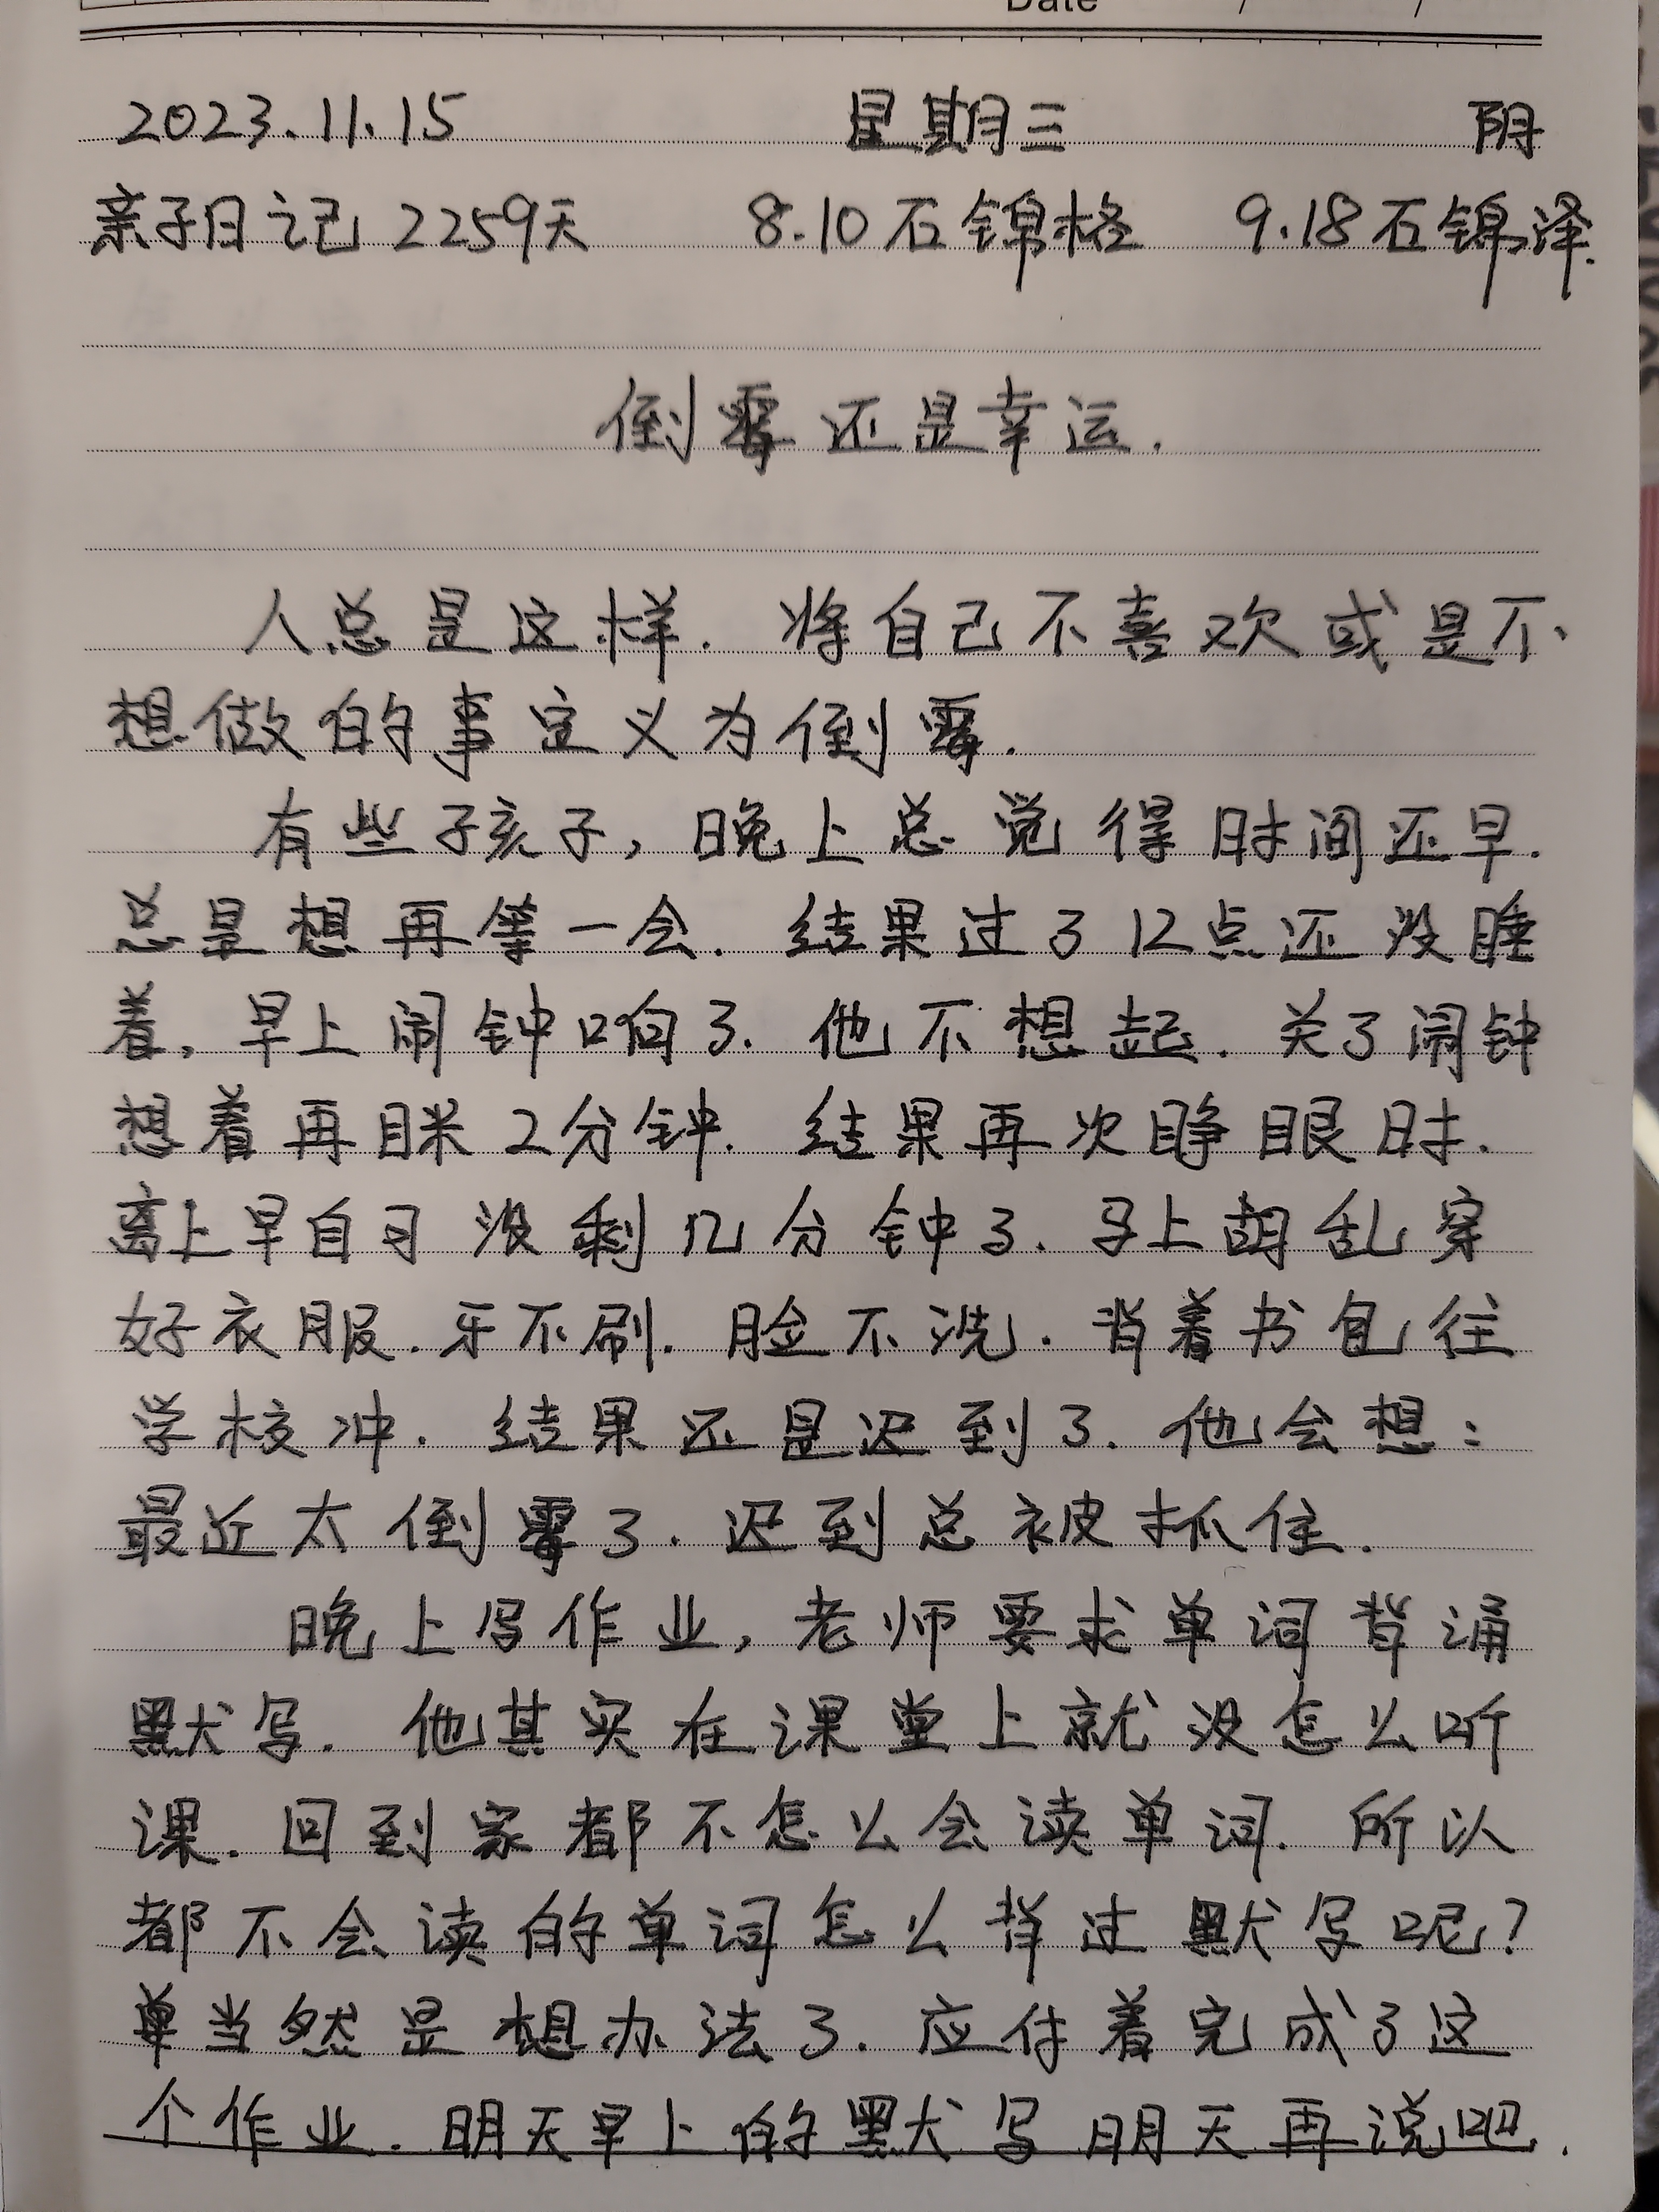 Date / /
2023.11.15 星期三 阴
亲子日记 2259天 8.10石锦格 9.18石锦泽.
倒霉还是幸运.
人总是这样.将自己不喜欢或是不
想做的事定义为倒霉.
有些孩子,晚上总觉得时间还早.
总是想再等一会.结果过了12点还没睡
着,早上闹钟响了.他不想起.关了闹钟
想着再眯2分钟.结果再次睁眼时.
离上早自习没剩几分钟了.马上胡乱穿
好衣服.牙不刷.脸不洗.背着书包往
学校冲.结果还是迟到了.他会想:
最近太倒霉了.迟到总被抓住.
晚上写作业,老师要求单词背诵
默写.他其实在课堂上就没怎么听
课.回到家都不怎么会读单词.所以
都不会读的单词怎么背过默写呢?
单当然是想办法了.应付着完成了这
个作业.明天早上的默写明天再说吧.